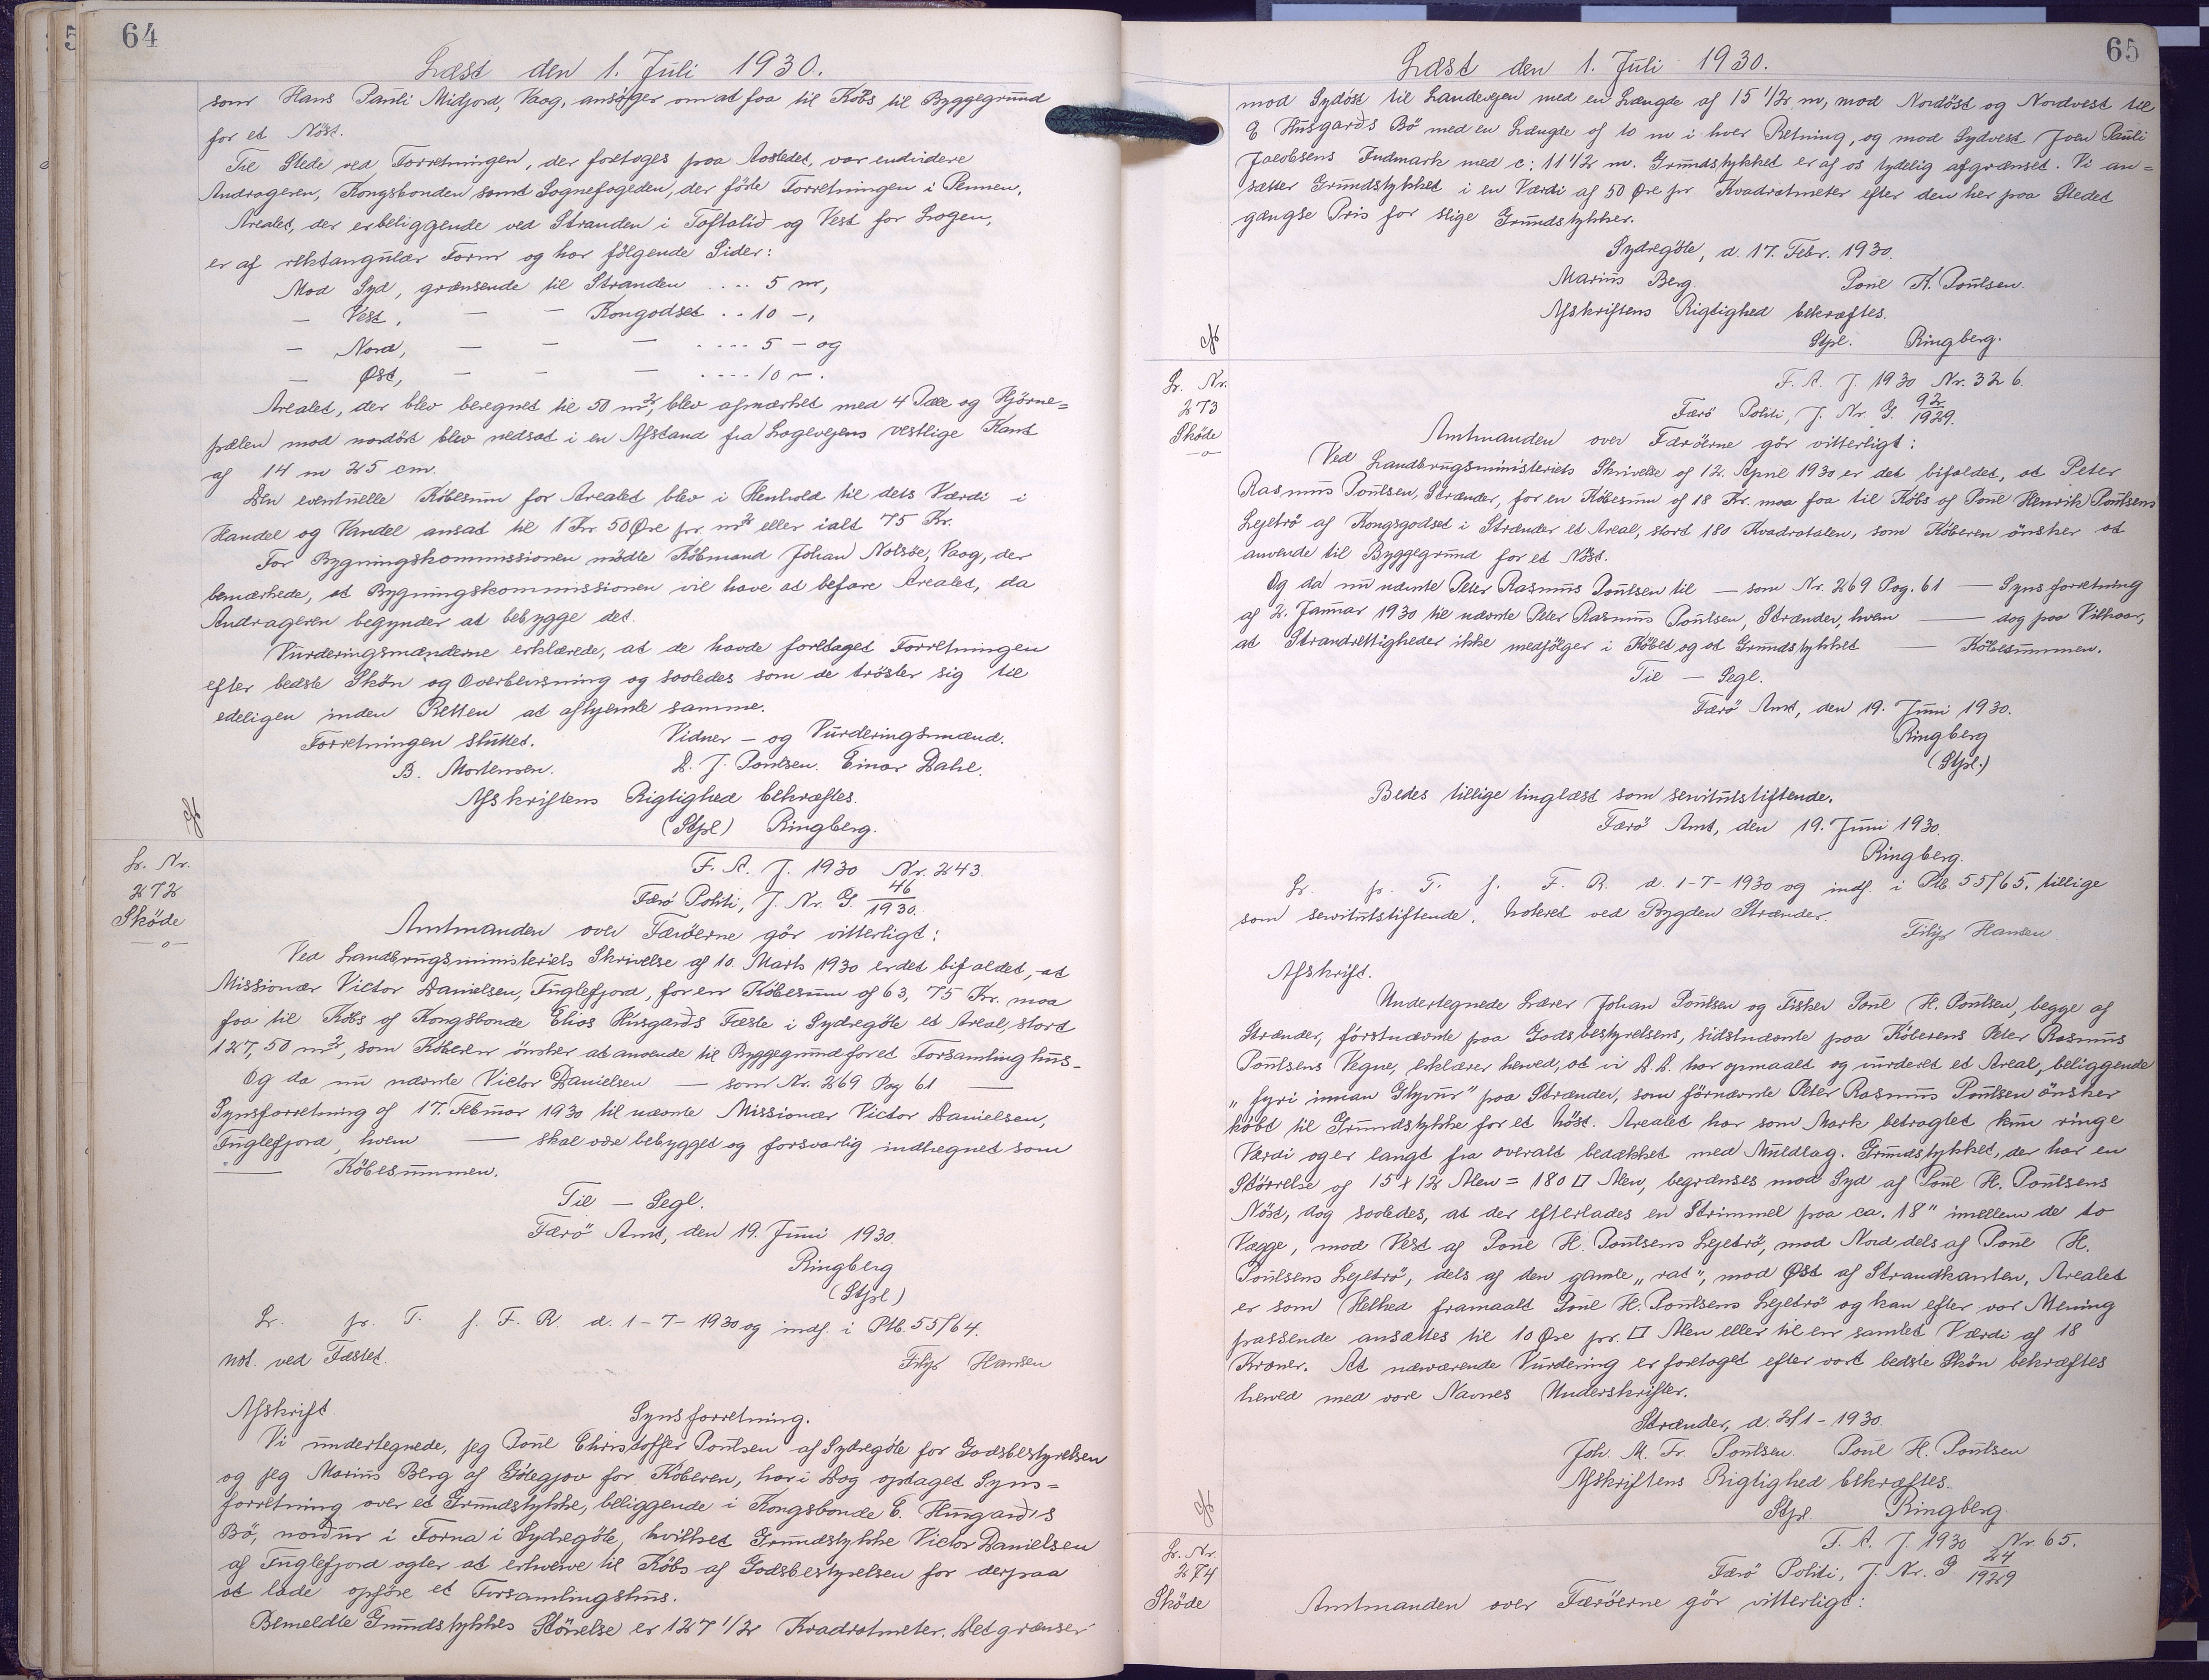 64
Læst den 1. Juli 1930.
som Hans Pauli Midjord, Vaag, ansöger om at faa til Købs til Byggegrund
for et Nöst.
Til Stede ved Forretningen, der foretoges paa Aastedet, var endvidere
Andrageren, Kongsbonden samt Sognefogeden, der förte Forretningen i Pennen.
Arealet, der er beliggende ved Stranden i Toftalið og Vest for Logen,
er af rektangulær Form og har fölgende Sider:
Mod Syd, grænsende til Stranden .... 5 m,
— Vest, — — Kongodset .. 10 -,
— Nord, — — — .... 5 - og
— Øst, — — — .... 10 -.
Arealet, der blev beregnet til 50 m², blev afmærket med 4 Pæle og Hjörne=
pælen mod nordöst blev nedsat i en Afstand fra Logevejens vestlige Kant
af 14 m 25 cm.
Den eventuelle Köbesum for Arealet blev i Henhold til dets Værdi i
Handel og Vandel ansat til 1 Kr. 50 Øre pr. m² eller ialt 75 Kr.
For Bygningskommissionen mödte Köbmand Johan Nolsöe, Vaag, der
bemærkede, at Bygningskommissionen vil have at befare Arealet, da
Andrageren begynder at bebygge det.
Vurderingsmænderne erklærede, at de havde foretaget Forretningen
efter bedste Skön og Overbevisning og saaledes som de tröster sig til
edeligen inden Retten at afhjemle samme.
Forretningen sluttet. Vidner - og Vurderingsmænd.
B. Mortensen. D. J. Poulsen. Einar Dahl.
Afskriftens Rigtighed bekræftes.
(Stpl) Ringberg.
Lr. Nr.
272
Sköde
—o—
F. A. J. 1930 Nr. 243.
Færö Politi, J. Nr. G. 46/1930.
Amtmanden over Færöerne gör vitterligt:
Ved Landbrugsministeriets Skrivelse af 10. Marts 1930 er det bifaldet, at
Missionær Victor Danielsen, Fuglefjord, for en Köbesum af 63,75 Kr. maa
faa til Købs af Kongsbonde Elias Husgarðs Fæste i Sydregöte et Areal, stort
127,50 m², som Köberen önsker at anvende til Byggegrund for et Forsamlinghus.
Og da nu nævnte Victor Danielsen — som Nr. 269 Pag 61 —
Synsforretning af 17. Februar 1930 til nævnte Missionær Victor Danielsen,
Fuglefjord, hvem — skal være bebygget og forsvarlig indhegnet som
— Köbesummen.
Til — Segl.
Færö Amt, den 19. Juni 1930.
Ringberg
(Stpl)
Lr. pr. T. f. F. R. d. 1-7-1930 og indf. i Ptb. 55/64.
not. ved Fæstet.
Filip Hansen
Afskrift. Synsforretning.
Vi undertegnede, jeg Poul Christoffer Poulsen af Sydregöte for Godsbestyrelsen
og jeg Marius Berg af Götegjov for Köberen, har i Dag optaget Syns=
forretning over et Grundstykke, beliggende i Kongsbonde E. Husgarð's
Bö, norður i Forna i Sydregöte, hvilket Grundstykke Victor Danielsen
af Fuglefjord agter at erhverve til Købs af Godsbestyrelsen for derpaa
at lade opføre et Forsamlingshus.
Bemeldte Grundstykkes Störrelse er 127 1/2 Kvadratmeter. Det grænser
65
Læst den 1. Juli 1930.
mod Sydöst til Landevejen med en Længde af 15 1/2 m, mod Nordöst og Nordvest til
E Husgarðs Bö med en Længde af 10 m i hver Retning, og mod Sydvest Joen Pauli
Jacobsens Indmark med c: 11 1/2 m. Grundstykket er af os tydelig afgrænset. Vi an=
sætter Grundstykket i en Værdi af 50 Øre pr. Kvadratmeter efter den her paa Stedet
gængse Pris for slige Grundstykker.
Sydregöte, d. 17. Febr. 1930.
Marius Berg. Poul K. Poulsen.
Afskriftens Rigtighed bekræftes.
Stpl. Ringberg.
Lr. Nr.
273
Sköde
—o—
F. A. J. 1930 Nr. 326.
Færö Politi, J. Nr. G. 92/1929.
Amtmanden over Færöerne gör vitterligt:
Ved Landbrugsministeriets Skrivelse af 12. April 1930 er det bifaldet, at Peter
Rasmus Poulsen, Strænder, for en Köbesum af 18 Kr. maa faa til Købs af Poul Henrik Poulsens
Lejebrö af Kongsgodset i Strænder et Areal, stort 180 Kvadratalen, som Köberen önsker at
anvende til Byggegrund for et Nöst.
Og da nu nævnte Peter Rasmus Poulsen til — som Nr. 269 Pag. 61 — Synsforretning
af 2. Januar 1930 til nævnte Peter Rasmus Poulsen, Strænder, hvem — dog paa Vilkaar,
at Strandrettigheder ikke medfölger i Köbet og at Grundstykket — Köbesummen.
Til — Segl.
Færö Amt, den 19. Juni 1930.
Ringberg
(Stpl.)
Bedes tillige tinglæst som servitutstiftende.
Færö Amt, den 19. Juni 1930.
Ringberg.
Lr. pr. T. f. F. R. d. 1-7-1930 og indf. i Ptb. 55/65. tillige
som servitutstiftende. Noteret ved Bygden Strænder.
Filip Hansen
Afskrift.
Undertegnede Lærer Johan Poulsen og Fisker Poul H. Poulsen, begge af
Strænder, förstnævnte paa Godsbestyrelsens, sidstnævnte paa Köberens Peter Rasmus
Poulsens Vegne, erklærer herved, at vi D.D. har opmaalt og vurderet et Areal, beliggende
„fyri innan Glyvur" paa Strænder, som förnævnte Peter Rasmus Poulsen önsker
köbt til Grundstykke for et Nöst. Arealet har som Mark betragtet kun ringe
Værdi og er langt fra overalt bedækket med Muldlag. Grundstykket, der har en
Störrelse af 15 x 12 Alen = 180 □ Alen, begrænses mod Syd af Poul H. Poulsens
Nöst, dog saaledes, at der efterlades en Strimmel paa ca. 18" imellem de to
Vægge, mod Vest af Poul H. Poulsens Lejebrö, mod Nord dels af Poul H.
Poulsens Lejebrö, dels af den gamle „rás", mod Øst af Strandkanten, Arealet
er som Helhed framaalt Poul H. Poulsens Lejebrö og kan efter vor Mening
passende ansættes til 10 Øre pr. □ Alen eller til en samlet Værdi af 18
Kroner. At nærværende Vurdering er foretaget efter vort bedste Skön bekræftes
herved med vore Navnes Underskrifter.
Strænder, d. 2/1-1930.
Joh. M. Fr. Poulsen. Poul H. Poulsen
Afskriftens Rigtighed bekræftes.
Stpl. Ringberg.
Lr. Nr.
274
Sköde
F. A. J. 1930 Nr. 65.
Færö Politi, J. Nr. G. 24/1929
Amtmanden over Færöerne gör vitterligt: